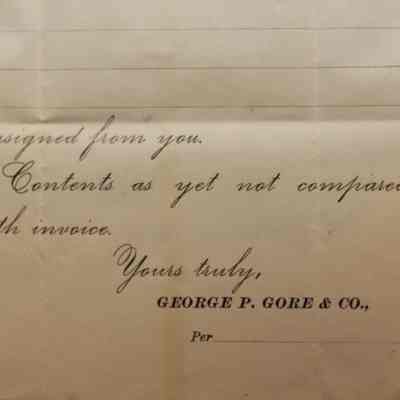 signed from you.
Contents as yet not compared
th invoice.
Yours truly,
GEORGE P. GORE & CO.,
Per